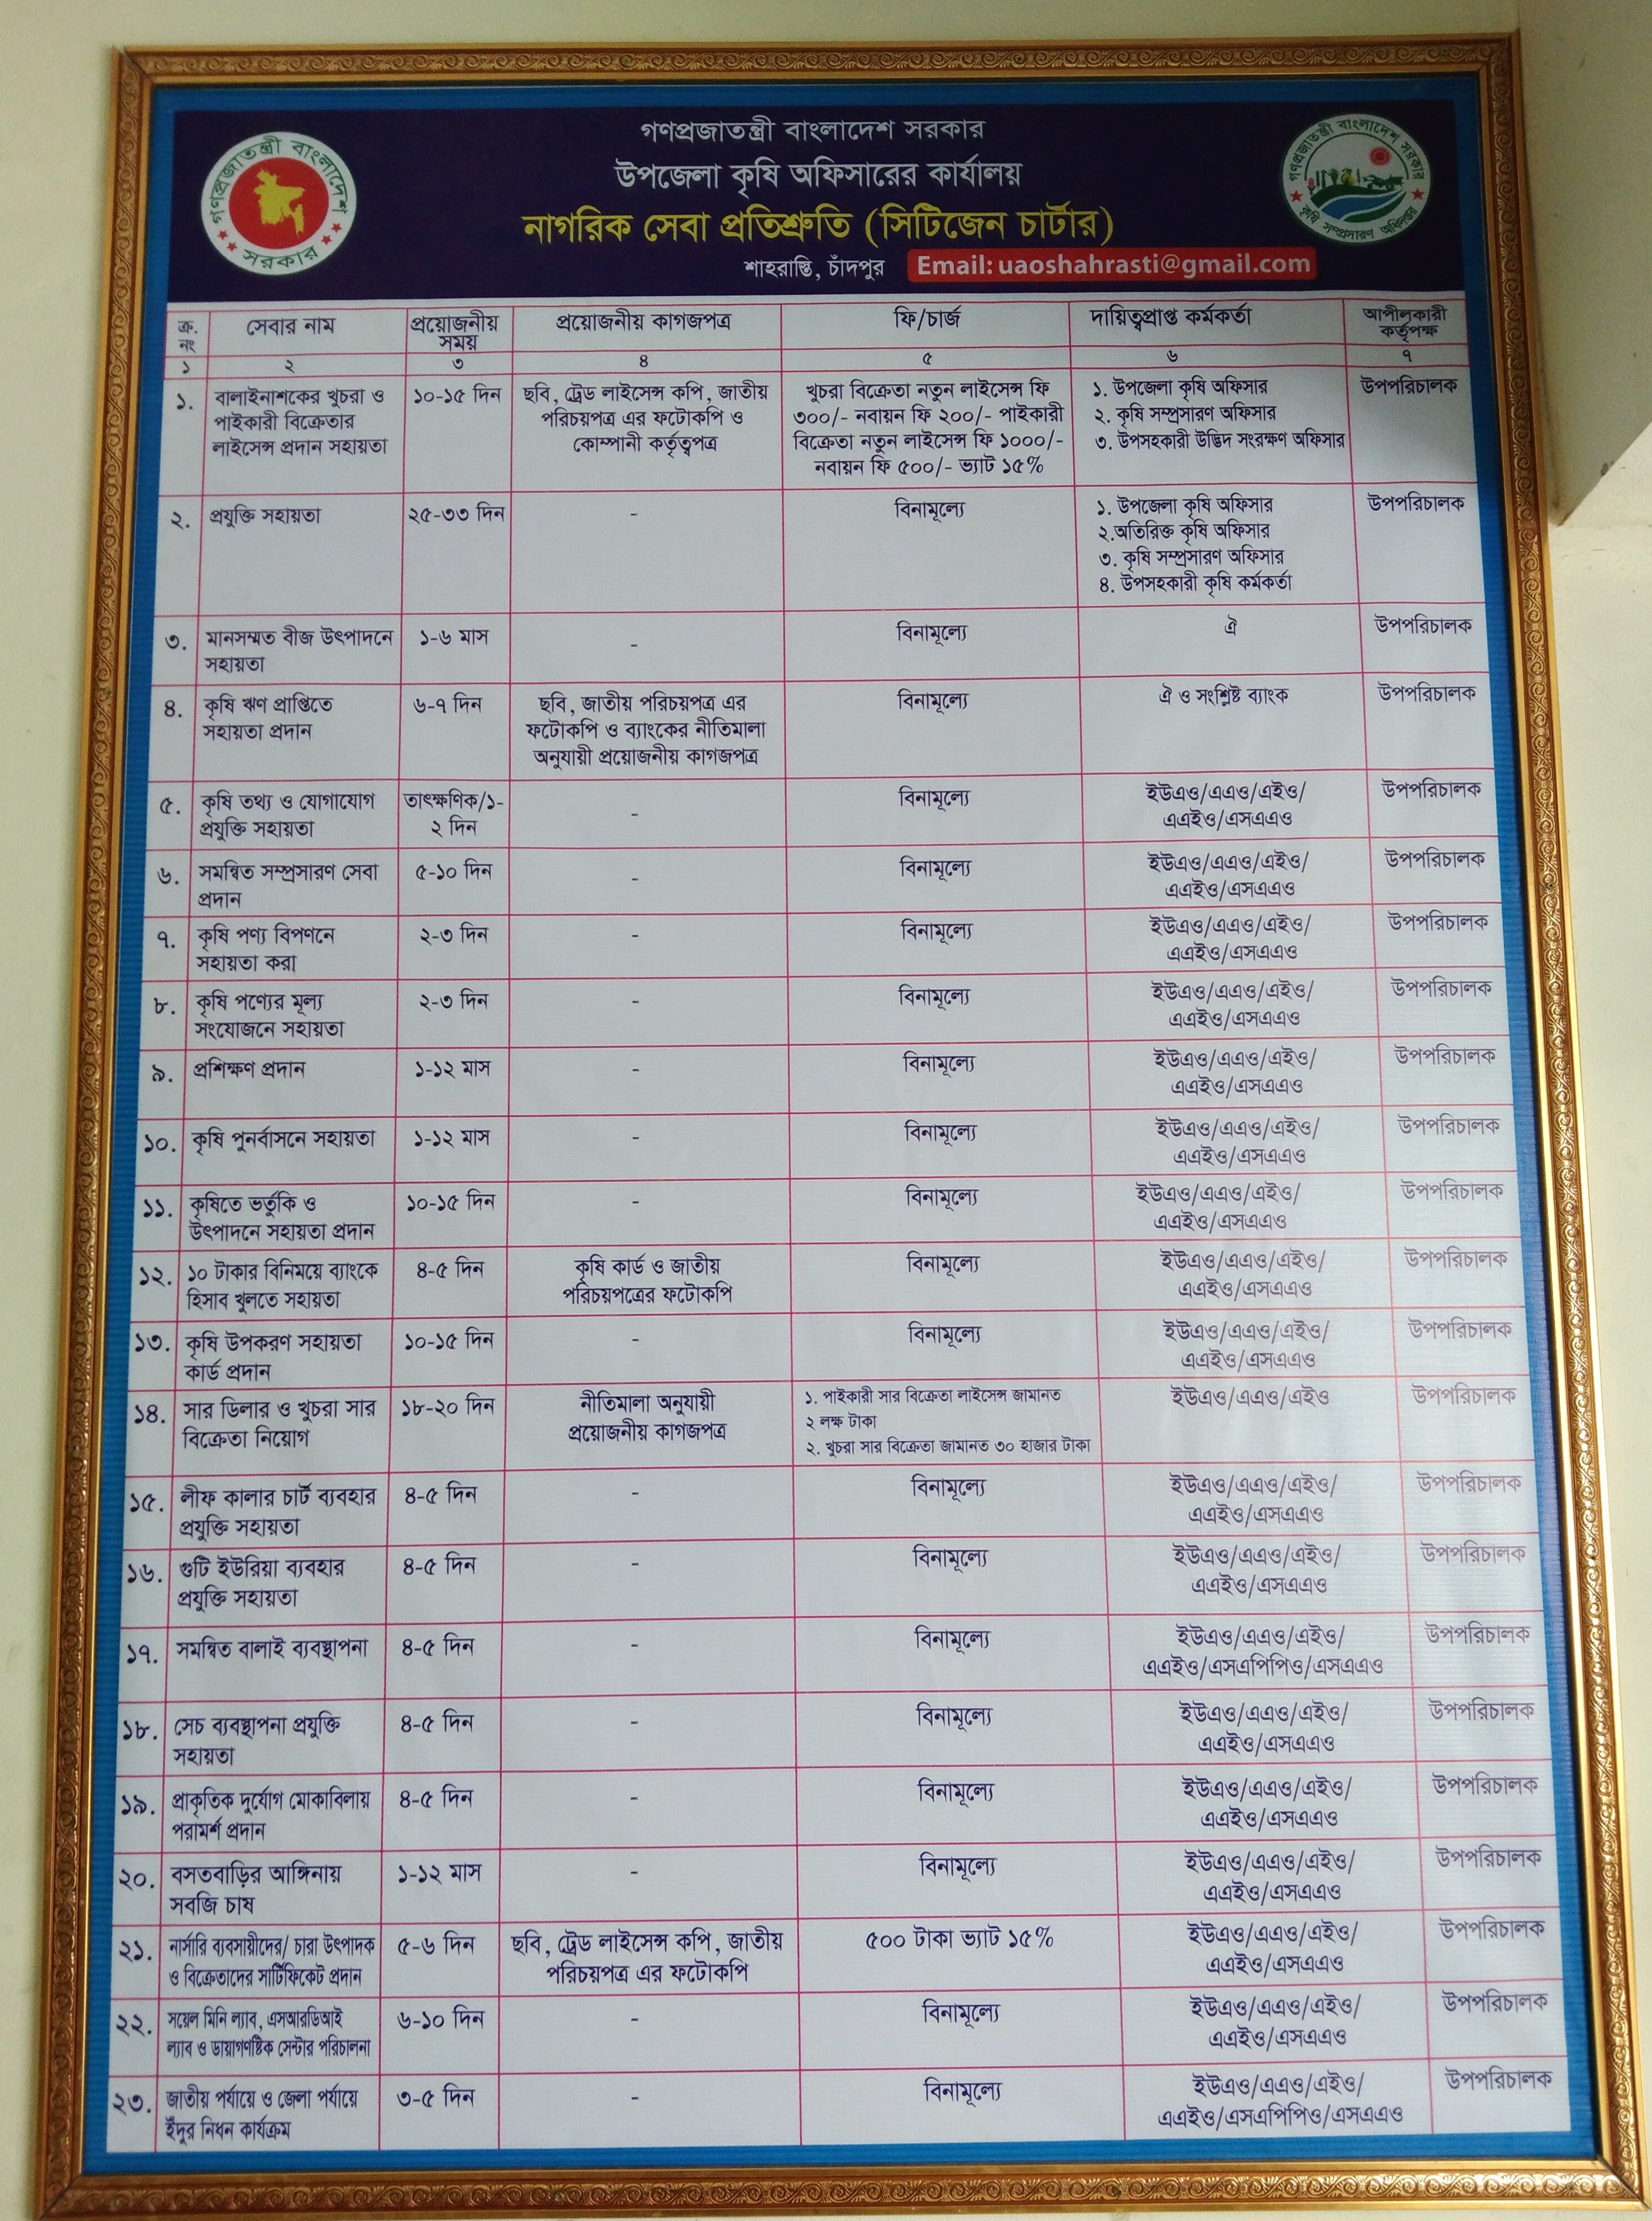 গণপ্রজাতন্ত্রী বাংলাদেশ সরকার
উপজেলা কৃষি অফিসারের কার্যালয়
নাগরিক সেবা প্রতিশ্রুতি (সিটিজেন চার্টার)
শাহরাস্তি, চাঁদপুর Email: uaoshahrasti@gmail.com
গণপ্রজাতন্ত্রী বাংলাদেশ
সরকার
গণপ্রজাতন্ত্রী বাংলাদেশ সরকার
কৃষি সম্প্রসারণ অধিদপ্তর
ক্র. নং সেবার নাম প্রয়োজনীয় সময় প্রয়োজনীয় কাগজপত্র ফি/চার্জ দায়িত্বপ্রাপ্ত কর্মকর্তা আপীলকারী কর্তৃপক্ষ
১ ২ ৩ ৪ ৫ ৬ ৭
১. বালাইনাশকের খুচরা ও ১০-১৫ দিন ছবি, ট্রেড লাইসেন্স কপি, জাতীয় খুচরা বিক্রেতা নতুন লাইসেন্স ফি ১. উপজেলা কৃষি অফিসার উপপরিচালক
পাইকারী বিক্রেতার পরিচয়পত্র এর ফটোকপি ও ৩০০/- নবায়ন ফি ২০০/- পাইকারী ২. কৃষি সম্প্রসারণ অফিসার
লাইসেন্স প্রদান সহায়তা কোম্পানী কর্তৃত্বপত্র বিক্রেতা নতুন লাইসেন্স ফি ১০০০/- ৩. উপসহকারী উদ্ভিদ সংরক্ষণ অফিসার
নবায়ন ফি ৫০০/- ভ্যাট ১৫%
২. প্রযুক্তি সহায়তা ২৫-৩৩ দিন - বিনামূল্যে ১. উপজেলা কৃষি অফিসার উপপরিচালক
২.অতিরিক্ত কৃষি অফিসার
৩. কৃষি সম্প্রসারণ অফিসার
৪. উপসহকারী কৃষি কর্মকর্তা
৩. মানসম্মত বীজ উৎপাদনে ১-৬ মাস - বিনামূল্যে ঐ উপপরিচালক
সহায়তা
৪. কৃষি ঋণ প্রাপ্তিতে ৬-৭ দিন ছবি, জাতীয় পরিচয়পত্র এর বিনামূল্যে ঐ ও সংশ্লিষ্ট ব্যাংক উপপরিচালক
সহায়তা প্রদান ফটোকপি ও ব্যাংকের নীতিমালা
অনুযায়ী প্রয়োজনীয় কাগজপত্র
৫. কৃষি তথ্য ও যোগাযোগ তাৎক্ষণিক/১- - বিনামূল্যে ইউএও/এএও/এইও/ উপপরিচালক
প্রযুক্তি সহায়তা ২ দিন এএইও/এসএএও
৬. সমন্বিত সম্প্রসারণ সেবা ৫-১০ দিন - বিনামূল্যে ইউএও/এএও/এইও/ উপপরিচালক
প্রদান এএইও/এসএএও
৭. কৃষি পণ্য বিপণনে ২-৩ দিন - বিনামূল্যে ইউএও/এএও/এইও/ উপপরিচালক
সহায়তা করা এএইও/এসএএও
৮. কৃষি পণ্যের মূল্য ২-৩ দিন - বিনামূল্যে ইউএও/এএও/এইও/ উপপরিচালক
সংযোজনে সহায়তা এএইও/এসএএও
৯. প্রশিক্ষণ প্রদান ১-১২ মাস - বিনামূল্যে ইউএও/এএও/এইও/ উপপরিচালক
এএইও/এসএএও
১০. কৃষি পুনর্বাসনে সহায়তা ১-১২ মাস - বিনামূল্যে ইউএও/এএও/এইও/ উপপরিচালক
এএইও/এসএএও
১১. কৃষিতে ভর্তুকি ও ১০-১৫ দিন - বিনামূল্যে ইউএও/এএও/এইও/ উপপরিচালক
উৎপাদনে সহায়তা প্রদান এএইও/এসএএও
১২. ১০ টাকার বিনিময়ে ব্যাংকে ৪-৫ দিন কৃষি কার্ড ও জাতীয় বিনামূল্যে ইউএও/এএও/এইও/ উপপরিচালক
হিসাব খুলতে সহায়তা পরিচয়পত্রের ফটোকপি এএইও/এসএএও
১৩. কৃষি উপকরণ সহায়তা ১০-১৫ দিন - বিনামূল্যে ইউএও/এএও/এইও/ উপপরিচালক
কার্ড প্রদান এএইও/এসএএও
১৪. সার ডিলার ও খুচরা সার ১৮-২০ দিন নীতিমালা অনুযায়ী ১. পাইকারী সার বিক্রেতা লাইসেন্স জামানত ইউএও/এএও/এইও উপপরিচালক
বিক্রেতা নিয়োগ প্রয়োজনীয় কাগজপত্র ২ লক্ষ টাকা
২. খুচরা সার বিক্রেতা জামানত ৩০ হাজার টাকা
১৫. লীফ কালার চার্ট ব্যবহার ৪-৫ দিন - বিনামূল্যে ইউএও/এএও/এইও/ উপপরিচালক
প্রযুক্তি সহায়তা এএইও/এসএএও
১৬. গুটি ইউরিয়া ব্যবহার ৪-৫ দিন - বিনামূল্যে ইউএও/এএও/এইও/ উপপরিচালক
প্রযুক্তি সহায়তা এএইও/এসএএও
১৭. সমন্বিত বালাই ব্যবস্থাপনা ৪-৫ দিন - বিনামূল্যে ইউএও/এএও/এইও/ উপপরিচালক
এএইও/এসএপিপিও/এসএএও
১৮. সেচ ব্যবস্থাপনা প্রযুক্তি ৪-৫ দিন - বিনামূল্যে ইউএও/এএও/এইও/ উপপরিচালক
সহায়তা এএইও/এসএএও
১৯. প্রাকৃতিক দুর্যোগ মোকাবিলায় ৪-৫ দিন - বিনামূল্যে ইউএও/এএও/এইও/ উপপরিচালক
পরামর্শ প্রদান এএইও/এসএএও
২০. বসতবাড়ির আঙ্গিনায় ১-১২ মাস - বিনামূল্যে ইউএও/এএও/এইও/ উপপরিচালক
সবজি চাষ এএইও/এসএএও
২১. নার্সারি ব্যবসায়ীদের/ চারা উৎপাদক ৫-৬ দিন ছবি, ট্রেড লাইসেন্স কপি, জাতীয় ৫০০ টাকা ভ্যাট ১৫% ইউএও/এএও/এইও/ উপপরিচালক
ও বিক্রেতাদের সার্টিফিকেট প্রদান পরিচয়পত্র এর ফটোকপি এএইও/এসএএও
২২. সয়েল মিনি ল্যাব, এসআরডিআই ৬-১০ দিন - বিনামূল্যে ইউএও/এএও/এইও/ উপপরিচালক
ল্যাব ও ডায়াগণষ্টিক সেন্টার পরিচালনা এএইও/এসএএও
২৩. জাতীয় পর্যায়ে ও জেলা পর্যায়ে ৩-৫ দিন - বিনামূল্যে ইউএও/এএও/এইও/ উপপরিচালক
ইঁদুর নিধন কার্যক্রম এএইও/এসএপিপিও/এসএএও